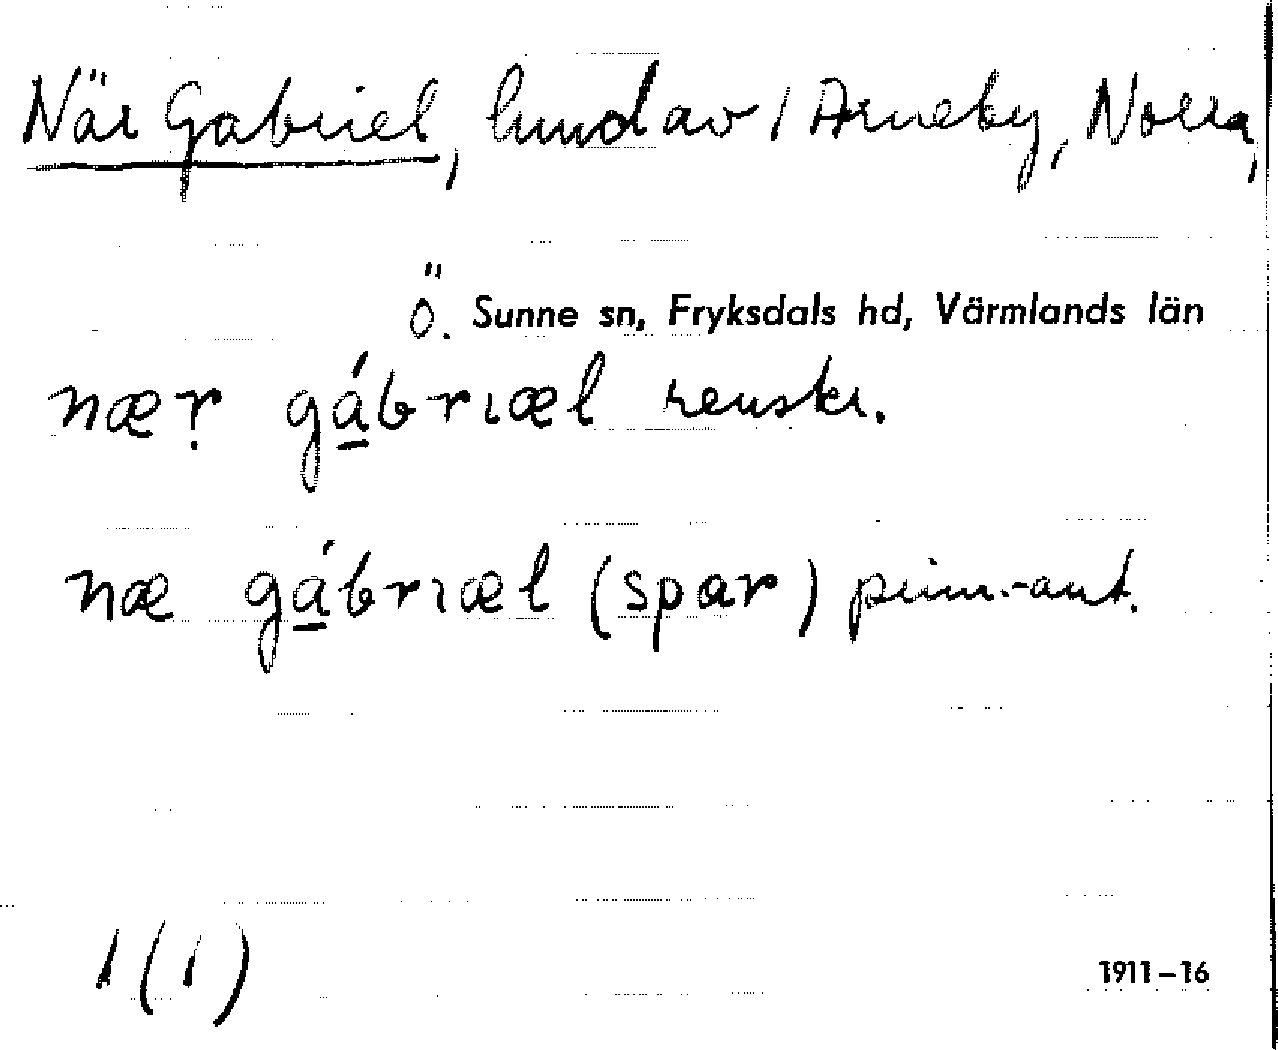 När Gabriel, hmd av / Arneby, Norra,
Ö. Sunne sn, Fryksdals hd, Värmlands län
næṛ gá̱briæl renskr.
næ gá̱briæl (spar) prim.-ant.
1 (1)
1911-16